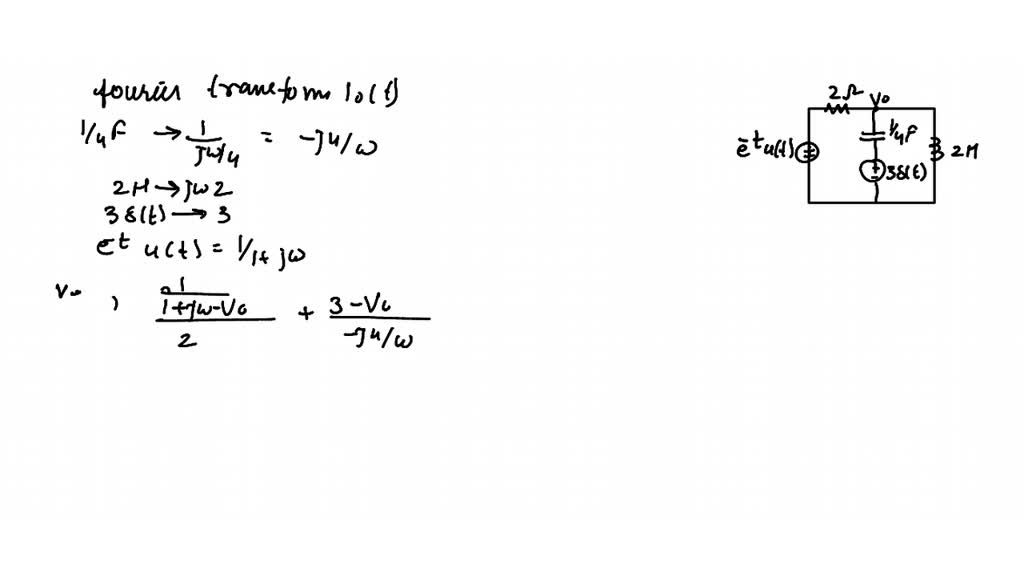 fourier transform Io(t)
1/4 F → 1/(jω/4) = -j4/ω
2H → jω2
3δ(t) → 3
e^-t u(t) = 1/1+jω
Vo, (1/(1+jω) - Vo)/2 + (3-Vo)/(-j4/ω)
2Ω Vo
1/4F
e^-t u(t)
3δ(t)
2H